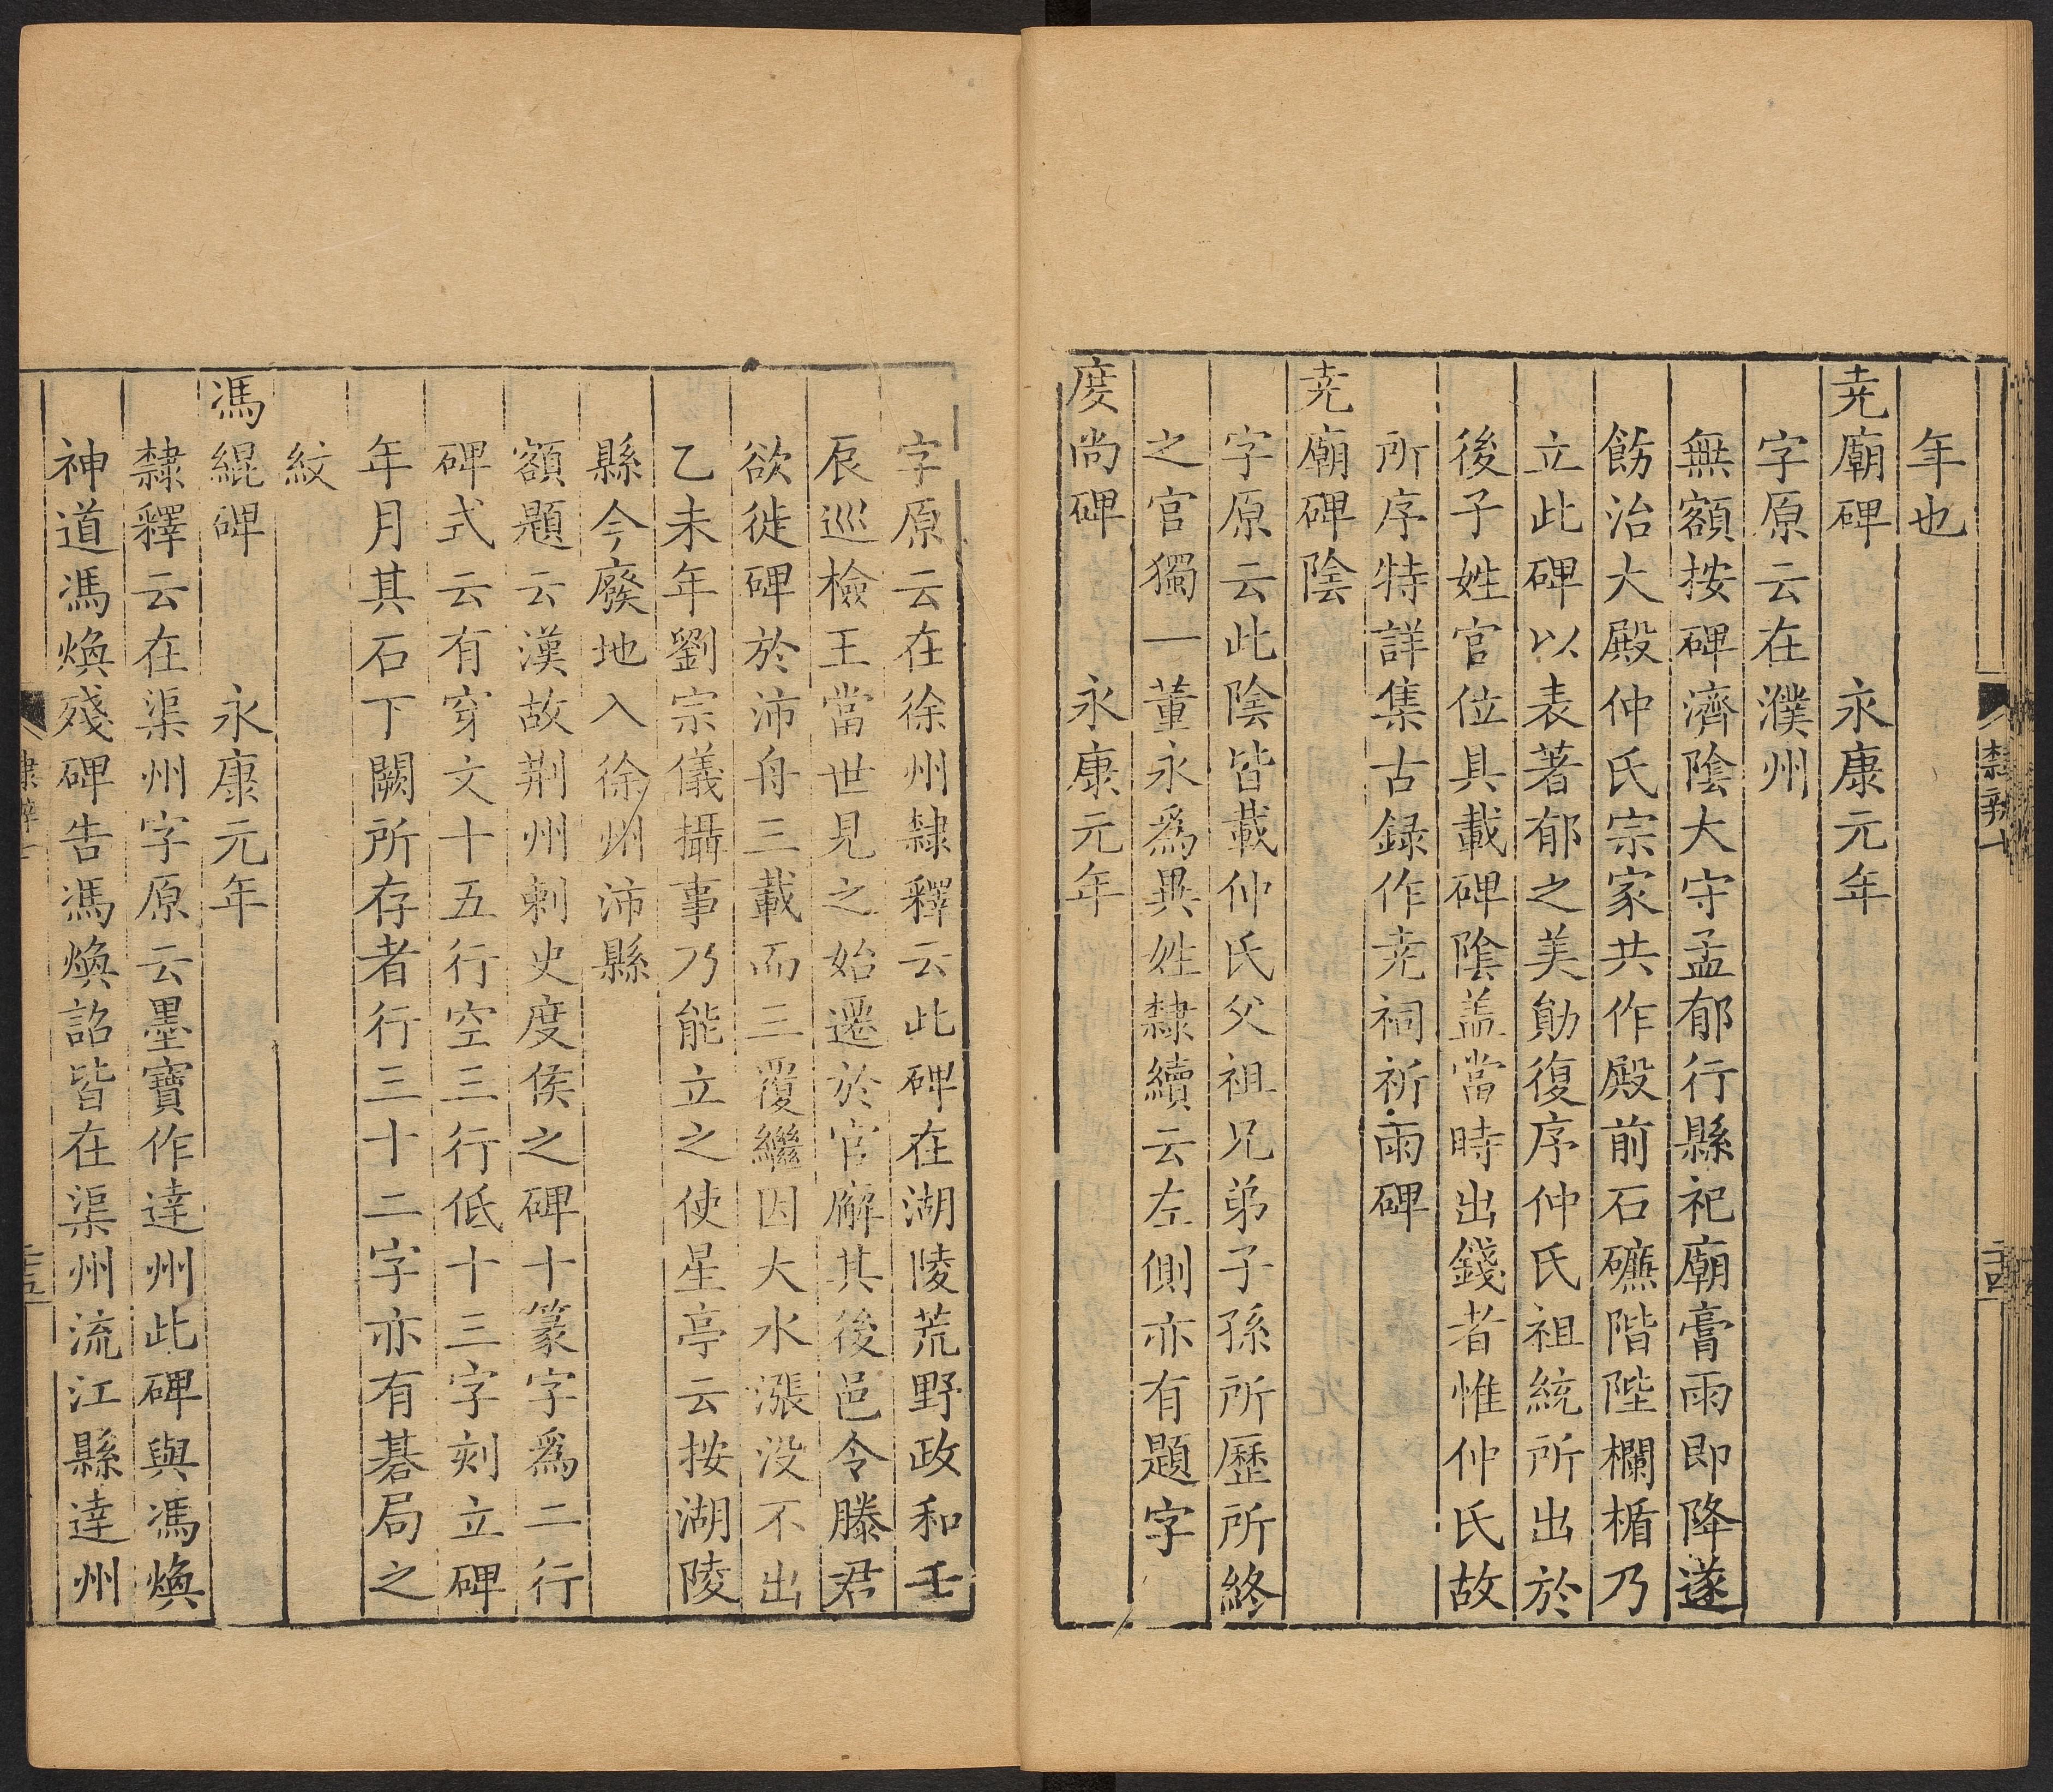 年也
尭廟碑 永康元年
字原云在濮州
無額按碑濟陰大守孟郁行縣祀廟膏雨即降遂
飭治大殿仲氏宗家共作殿前石磶階陛欄楯乃
立此碑以表著郁之美勛復序仲氏祖統所出於
後子姓官位具載碑陰盖當時出錢者惟仲氏故
所序特詳集古録作尭祠祈雨碑
尭廟碑陰
字原云此陰皆載仲氏父祖兄弟子孫所歷所終
之官獨一董永為異姓隸續云左側亦有題字
度尚碑 永康元年
字原云在徐州隸釋云此碑在湖陵荒野政和壬
辰巡檢王當世見之始遷於官廨其後邑令滕君
欲徙碑於沛舟三載而三覆繼因大水漲没不出
乙未年劉宗儀攝事乃能立之使星亭云按湖陵
縣今廢地入徐州沛縣
額題云漢故荆州刺史度侯之碑十篆字爲二行
碑式云有穿文十五行空三行低十三字刻立碑
年月其石下闕所存者行三十二字亦有碁局之
紋
馮緄碑 永康元年
隸釋云在渠州字原云墨寶作達州此碑與馮煥
神道馮煥殘碑告馮煥詔皆在渠州流江縣達州